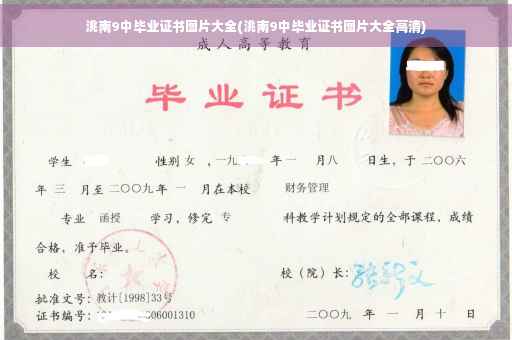 洮南9中毕业证书图片大全(洮南9中毕业证书图片大全高清)
成人高等教育
毕业证书
学生 性别 女 , 一九 年 一 月八 日生，于 二〇〇六
年 三 月至 二〇〇九 年 一 月在本校 财务管理
专业 函授 学习，修完 专 科教学计划规定的全部课程，成绩
合格，准予毕业。
校 名： 校（院）长：
批准文号：教计[1998]33号
证书编号： 06001310 二〇〇九 年 一 月 十 日